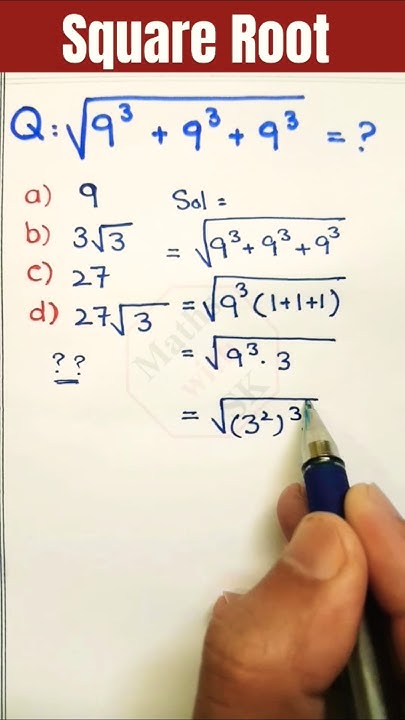 Square Root
Q: √9³ + 9³ + 9³ = ?
a) 9
b) 3√3
c) 27
d) 27√3
? ?
Sol =
= √9³ + 9³ + 9³
= √9³ (1+1+1)
= √9³ · 3
= √(3²)³
Maths
with
SK